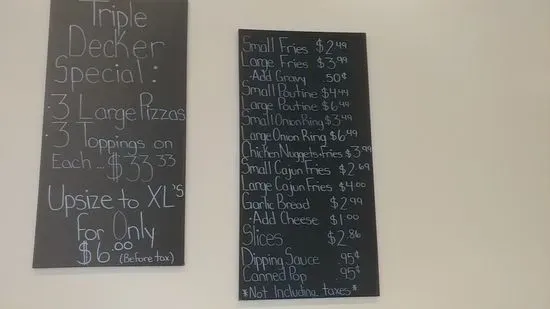 Triple
Decker
Special:
·3 Large Pizzas
·3 Toppings on
Each... $33.33
Upsize to XL'S
for Only
$6.00 (Before tax)
Small Fries $2.49
Large Fries $3.99
·Add Gravy .50¢
Small Poutine $4.49
Large Poutine $6.49
Small Onion Ring $3.49
Large Onion Ring $6.49
Chicken Nuggets+Fries $3.99
Small Cajun Fries $2.69
Large Cajun Fries $4.00
Garlic Bread $2.99
·Add Cheese $1.00
Slices $2.86
Dipping Sauce .95¢
Canned Pop .95¢
*Not Including taxes*